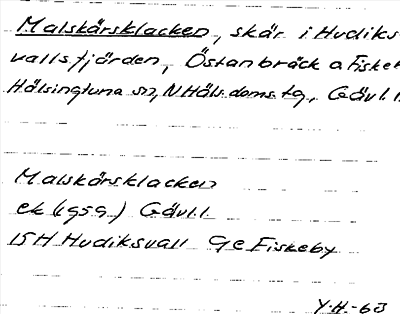 Malskärsklacken, skär i Hudiks
vallsfjärden, Östanbräck a Fiske
Hälsingtuna sn, N Häls. doms. tg, Gävl. l.
Malskärsklacken
ek (1959) Gävl. l
15H Hudiksvall 9c Fiskeby
Y.H.-63